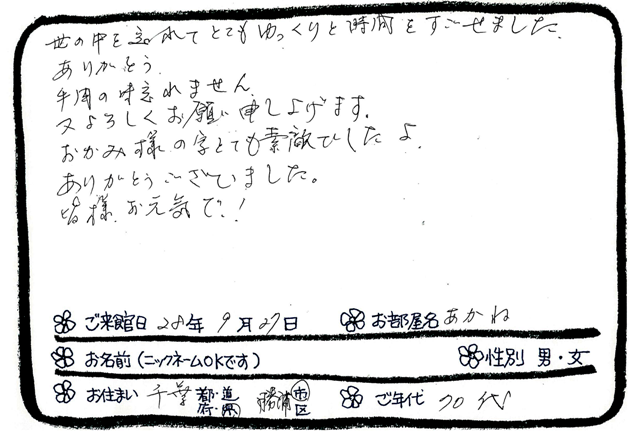 世の中を忘れてとてもゆっくりと時間をすごせました。
ありがとう。
半周の時忘れません。
又よろしくお願い申し上げます。
おかみ様の字とても素敵でしたよ。
ありがとうございました。
皆様お元気で!
ご来館日 28年 9月27日 お部屋名 あかね
お名前(ニックネームOKです) 性別 男・女
お住まい 千葉 都・道・府・県 勝浦 市区 ご年代 70代